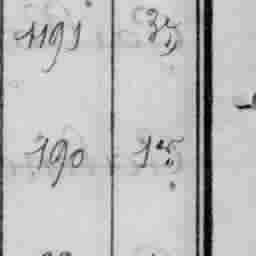 1191 35
190 15